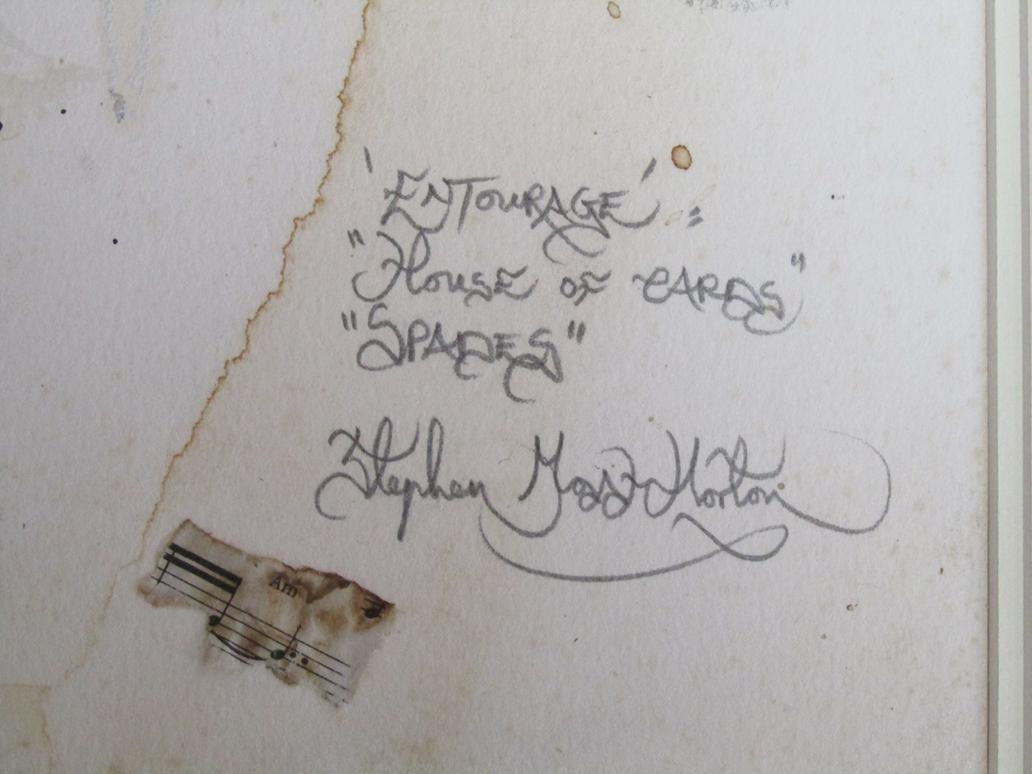 'ENTOURAGE' :
"House of CARDS"
"SPADES"
Stephen Moss Horton
Am